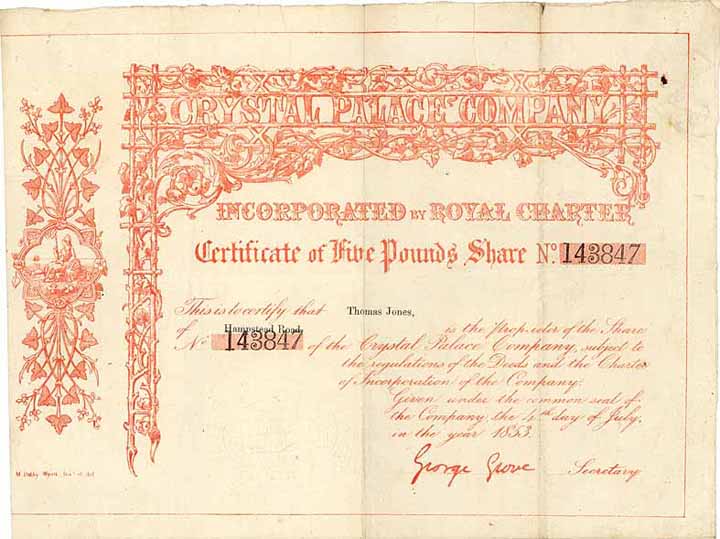 CRYSTAL PALACE COMPANY
INCORPORATED BY ROYAL CHARTER
Certificate of Five Pounds Share No. 143847
This is to certify that Thomas Jones,
of Hampstead Road, is the Proprietor of the Share
No 143847 of the Crystal Palace Company, subject to
the regulations of the Deeds and the Charter
of Incorporation of the Company.
Given under the common seal of
the Company, the 4th day of July,
in the year 1853.
George Grove Secretary
M. Digby Wyatt,